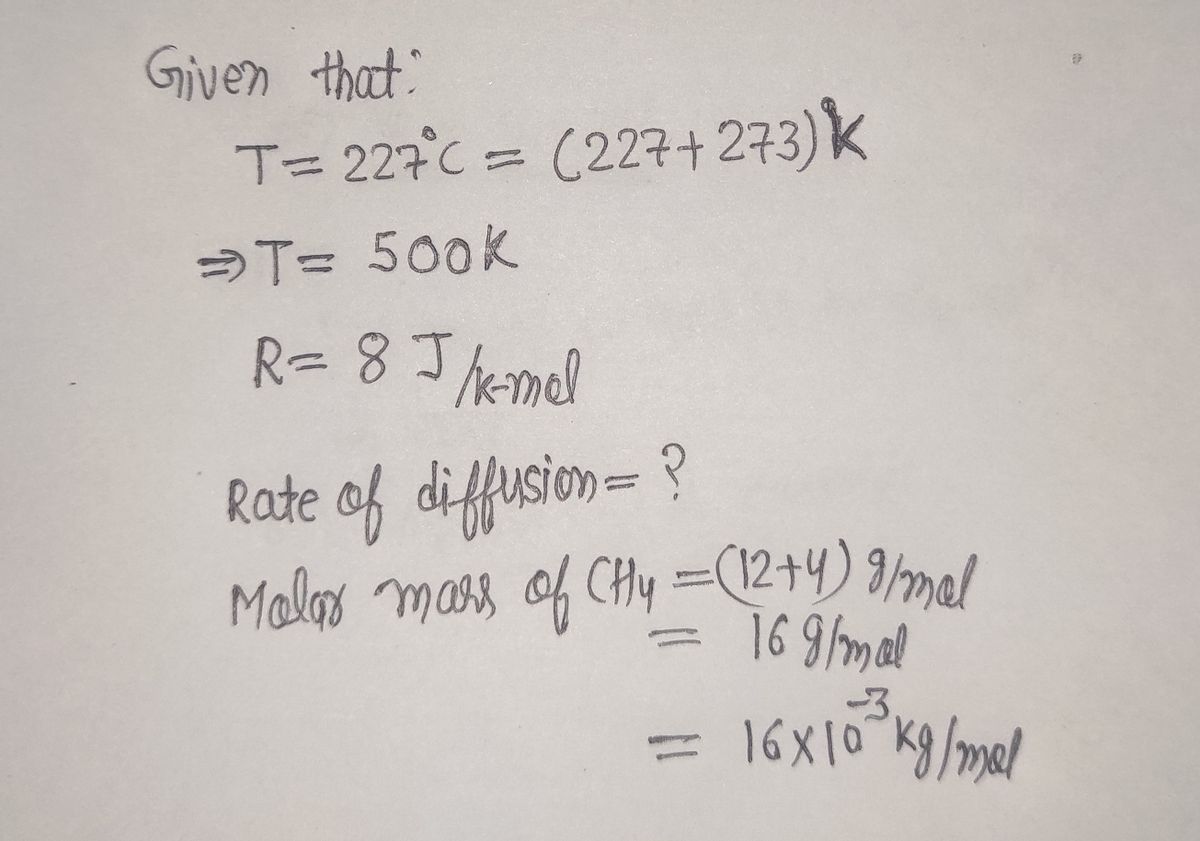 Given that:
T = 227°C = (227+273)K
⇒ T = 500K
R = 8 J/k-mol
Rate of diffusion = ?
Molar mass of CH4 = (12+4) g/mol
= 16 g/mol
= 16×10⁻³ kg/mol